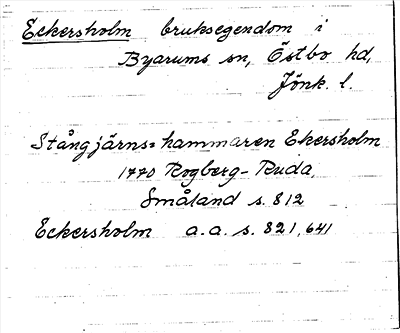 Eckersholm bruksegendom i
Byarums sn, Östbo hd,
Jönk. l.
Stångjärns=hammaren Ekersholm
1770 Rogberg-Ruda,
Småland s. 812
Eckersholm a.a. s. 821, 641